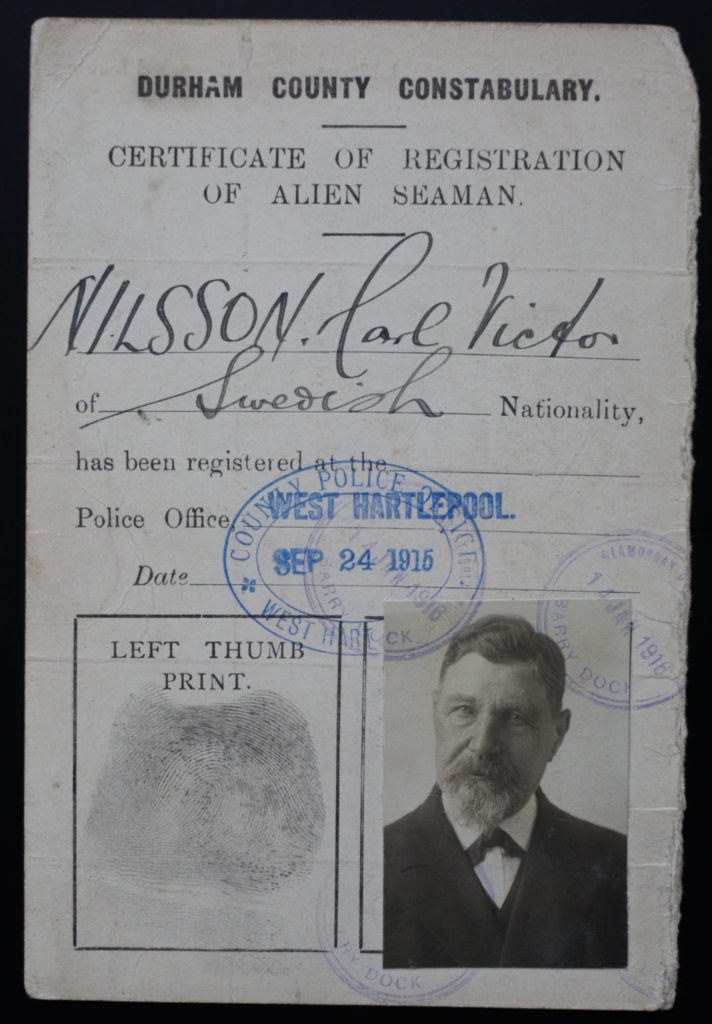 DURHAM COUNTY CONSTABULARY.
CERTIFICATE OF REGISTRATION
OF ALIEN SEAMAN.
NILSSON. Carl Victor
of Swedish Nationality,
has been registered at the
Police Office, WEST HARTLEPOOL.
COUNTY POLICE
SEP 24 1915
WEST
14 JAN 1916
BARRY DOCK
Date
GLAMORGAN
14 JAN 1916
BARRY DOCK
LEFT THUMB
PRINT.
RY DOCK